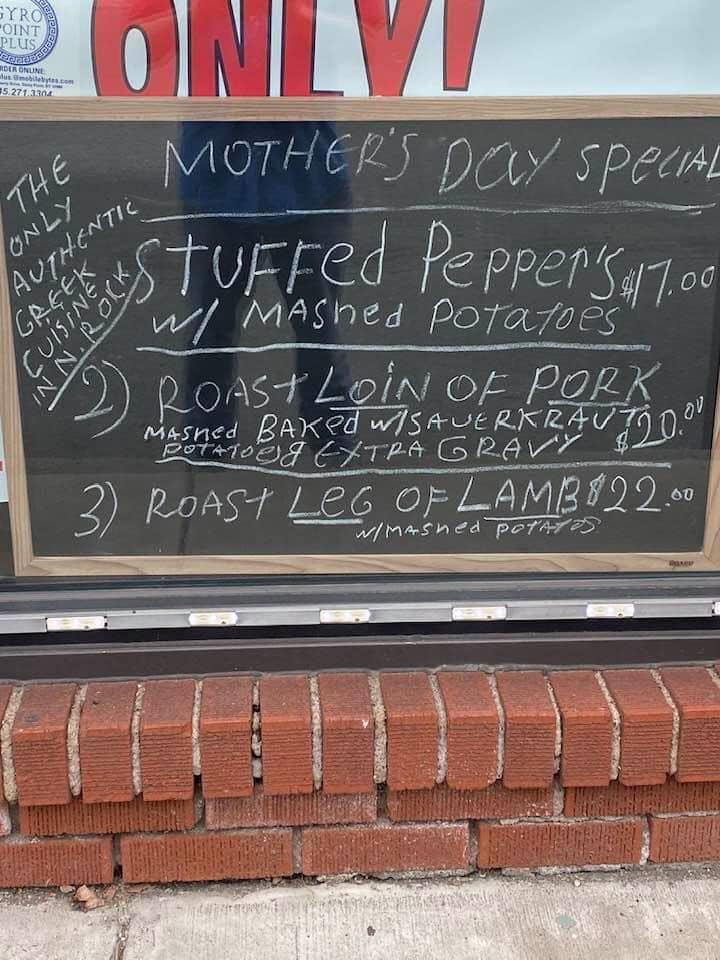 GYRO
POINT
PLUS
ORDER ONLINE:
ONLY!
THE
ONLY
AUTHENTIC
GREEK
CUISINE
IN N. ROCK
MOTHER'S DAY SPECIAL
STUFFed Pepper's $17.00
w/ MASHed POTATOES
2) ROAST LOIN OF PORK
MASHed BAKed w/SAUERKRAUT $20.00
POTATOES & EXTRA GRAVY
3) ROAST LEG OF LAMB $22.00
w/MASHed POTATOS